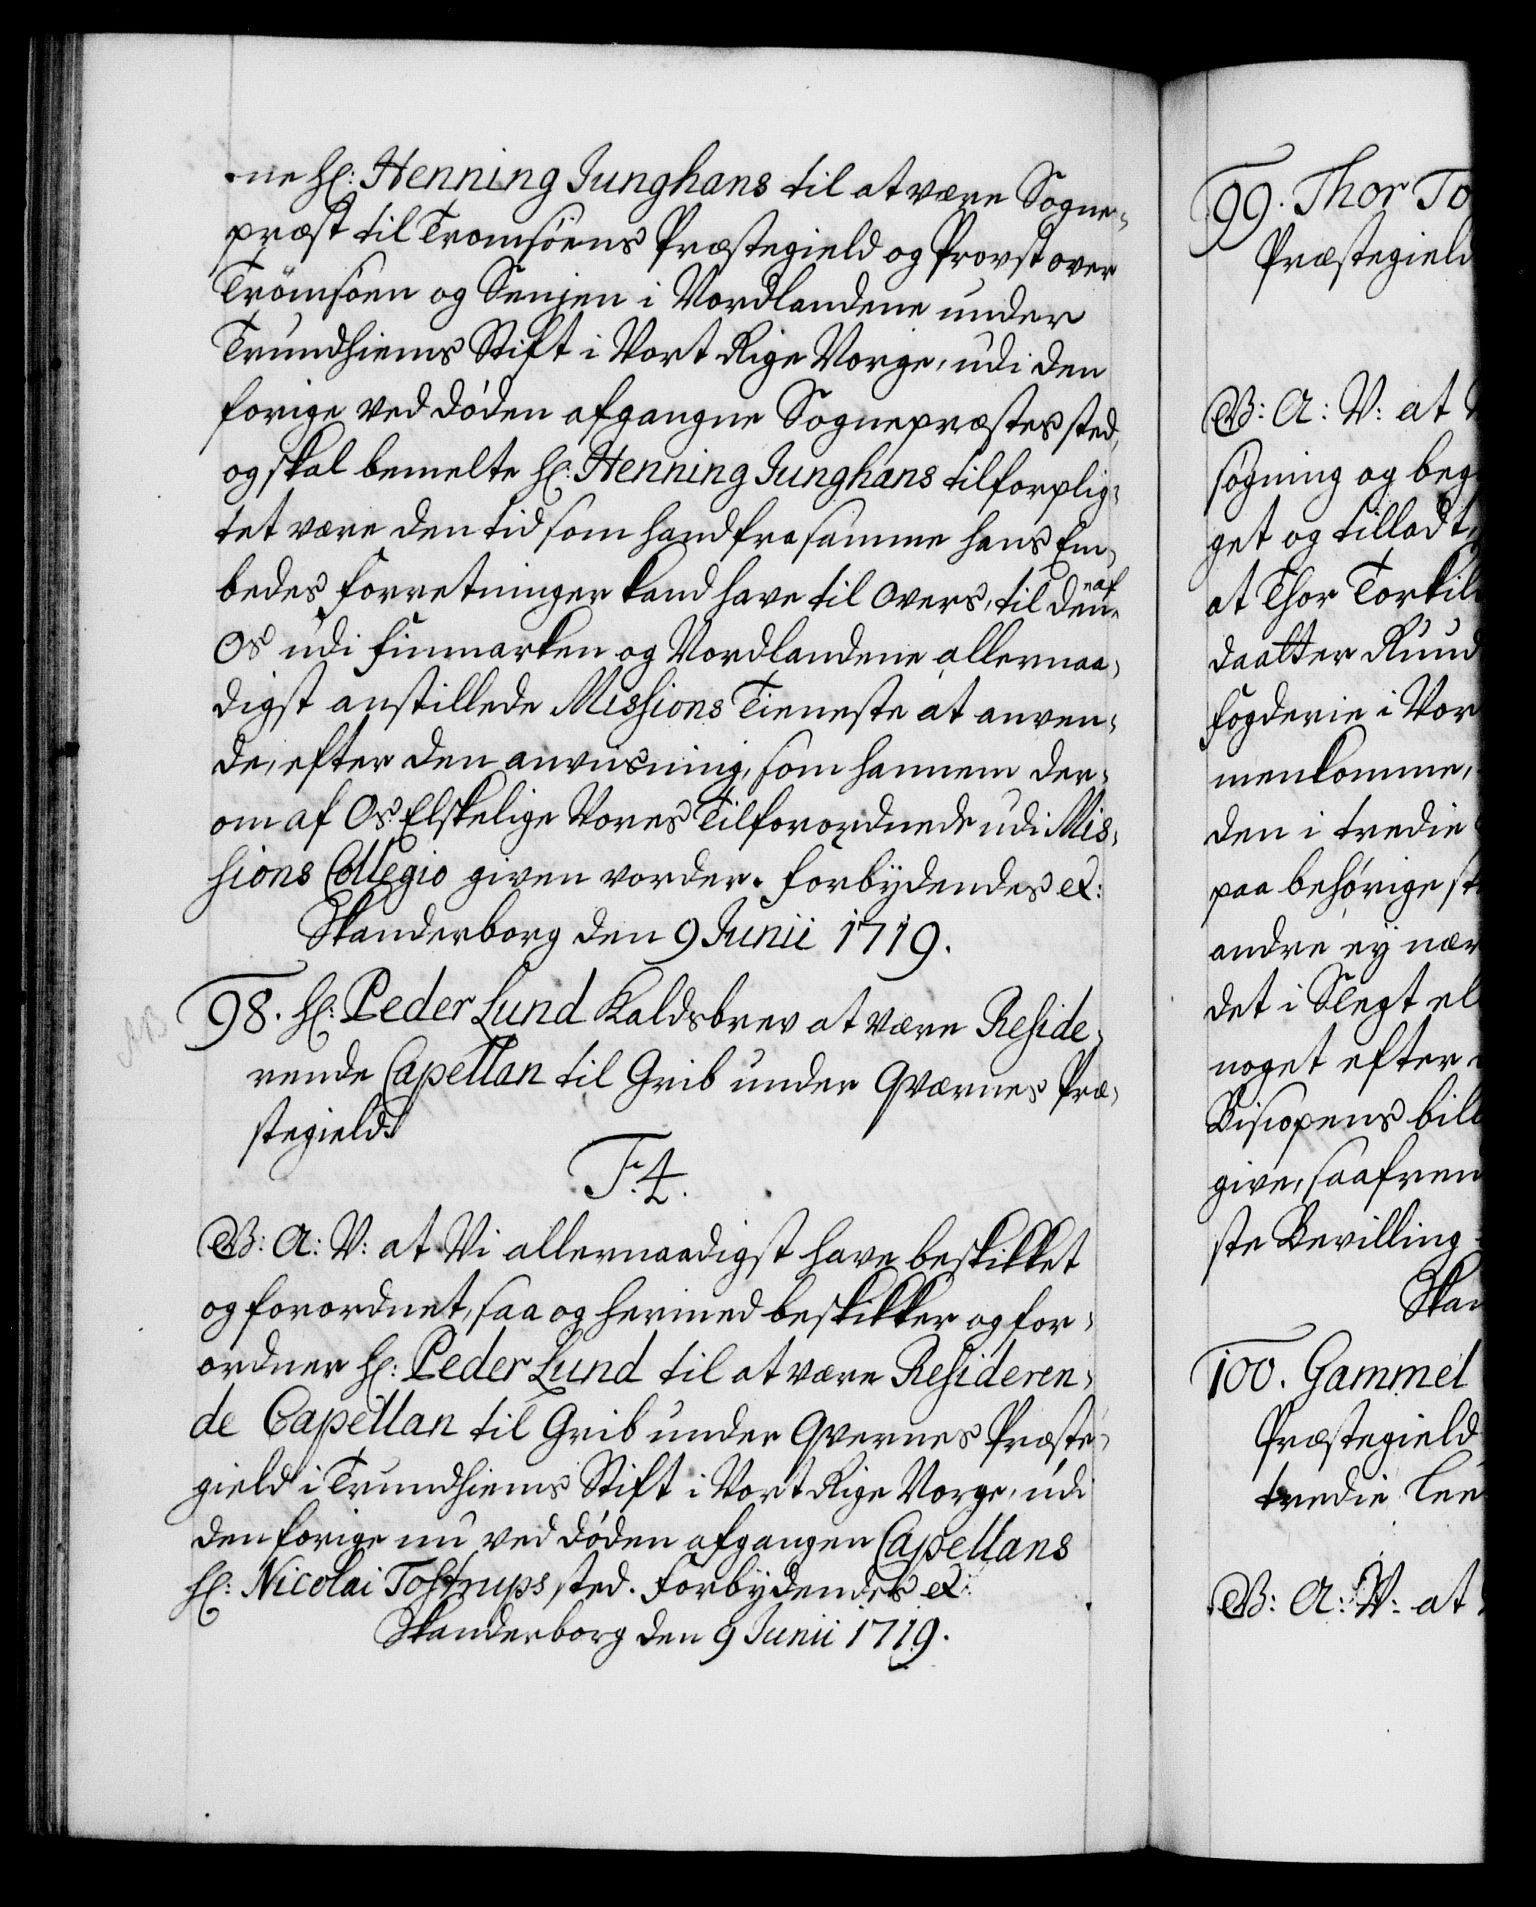 -ne Hr: Henning Junghans til at være Sogne-
præst til Tromsöens Præstegield og Provst over
Trömsöen og Senjen i Nordlandene under
Trundhiems Stift i Vort Rige Norge, udi den
forige ved döden afgangne Sognepræstes sted,
og skal bemelte Hr: Henning Junghans tilforplig-
tet være den tid som hand fra samme hans Em-
bedes forretninger kand have til overs, til den af
Os udi Finmarken og Nordlandene allernaa-
digst anstillede Missions Tieneste at anven-
de, efter den anviisning, som hannem der-
om af Os Elskelige Vores Tilforordnede udi Mis-
sions Collegio given vorder. Forbydendes etc:
Skanderborg den 9 Junii 1719.
NB
98. Hr: Peder Lund Kaldsbrev at være Reside-
rende Capellan til Grib under Qværnes Præ-
stegield.
F. 4.
G: A: V: at Vi allernaadigst have beskikket
og forordnet, saa og hermed beskikker og for-
ordner Hr: Peder Lund til at være Resideren-
de Capellan til Grib under Qvernes Præste-
gield i Trundhiems Stift i Vort Rige Norge, udi
den forige nu ved döden afgangen Capellans
Hr: Nicolai Tostrups sted. Forbydendes etc:
Skanderborg den 9 Junii 1719.
99. Thor To
Præstegield
G: A: V: at
søgning og beg
get og tilladt,
at Thor Torkil
daatter Ruud
Fogderie i Nor
menkomme,
den i tredie
paa behørige st
andre ey nær
det i Slegt el
noget efter
Bisopens bill
give, saafrem
ste Bevilling
Skan
100. Gammel
Præstegield
tredie Lee
G: A: V: at